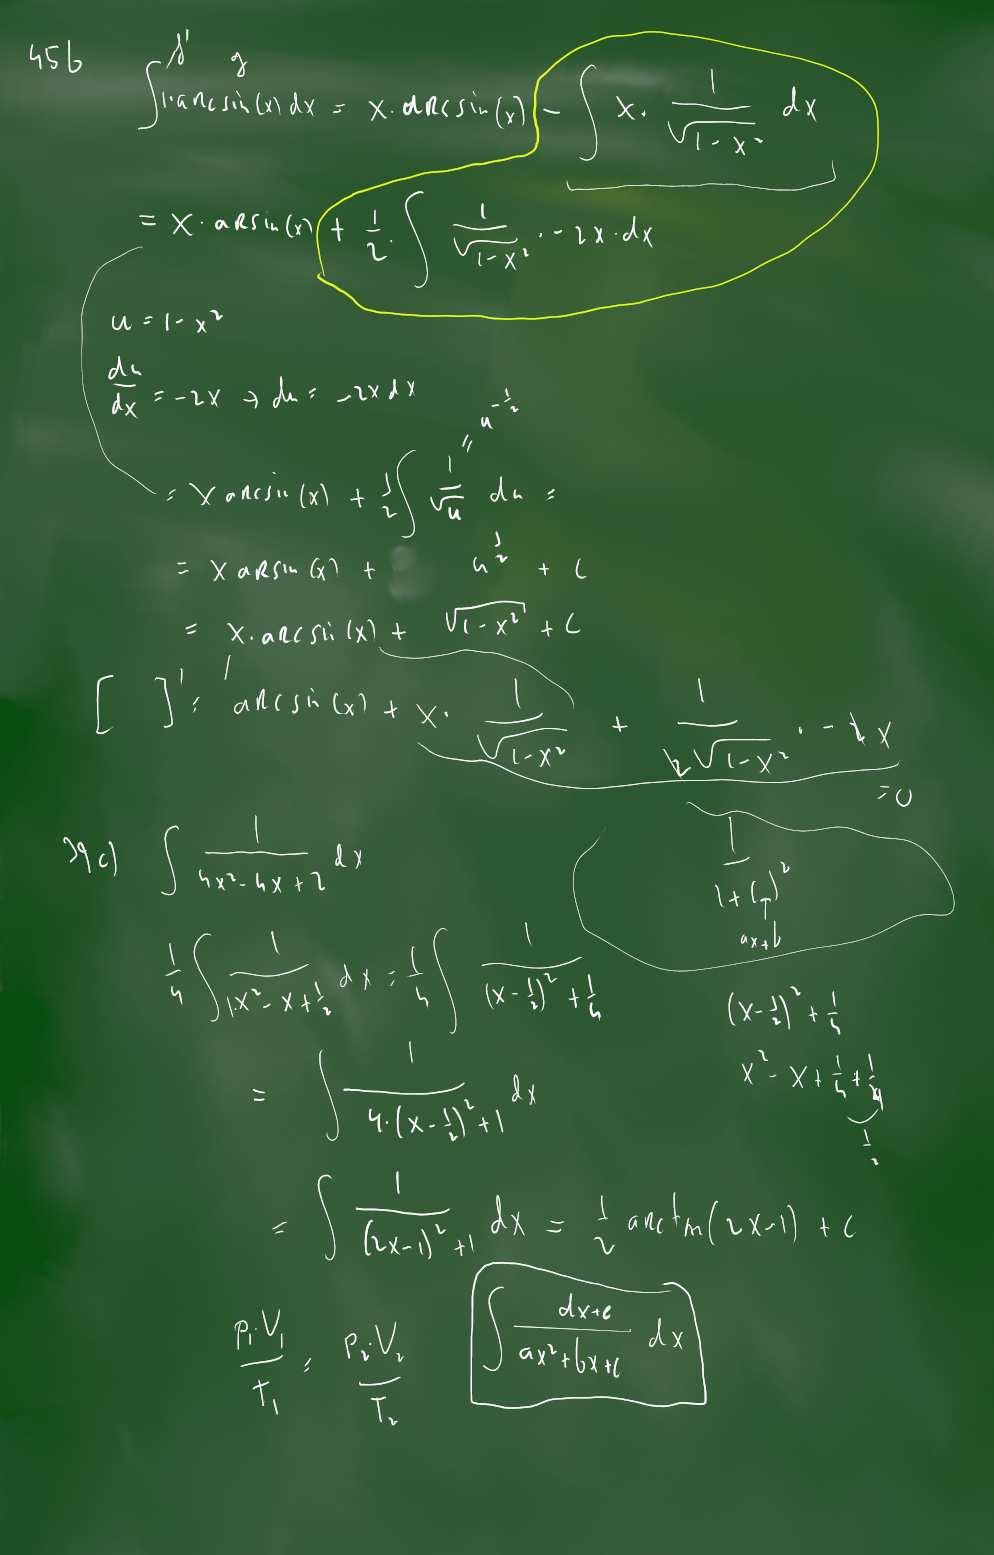 45b
f' g
∫ 1·arcsin(x) dx = x·arcsin(x) − ∫ x· 1/√(1−x²) dx
= x·arsin(x) + 1/2· ∫ 1/√(1−x²) · −2x·dx
u = 1−x²
du/dx = −2x → du = −2x dx
= x arcsin(x) + 1/2 ∫ 1/√u du =
= u^(−1/2)
= x arsin(x) + u^(1/2) + C
= x·arcsin(x) + √(1−x²) + C
[ ]' = arcsin(x) + x· 1/√(1−x²) + 1/(2√(1−x²)) · −2x
= 0
39c) ∫ 1/(4x²−4x+2) dx
1/(1+( )²)
ax+b
1/4 ∫ 1/(1·x²−x+1/2) dx = 1/4 ∫ 1/((x−1/2)²+1/4)
(x−1/2)² + 1/4
x² − x + 1/4 + 1/4
1/2
= ∫ 1/(4·(x−1/2)²+1) dx
= ∫ 1/((2x−1)²+1) dx = 1/2 arctan(2x−1) + C
P₁·V₁/T₁ = P₂·V₂/T₂
∫ (dx+e)/(ax²+bx+c) dx